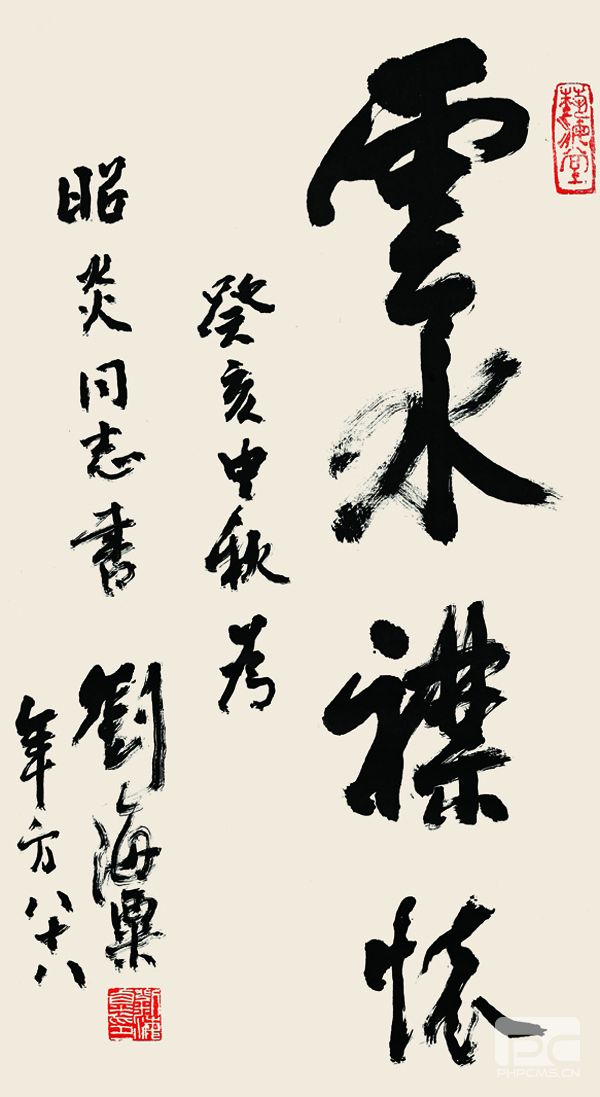 雲水襟懷
癸亥中秋为
昭炎同志書
劉海粟
年方八十八
藝海堂
PC
PHPCMS.CN